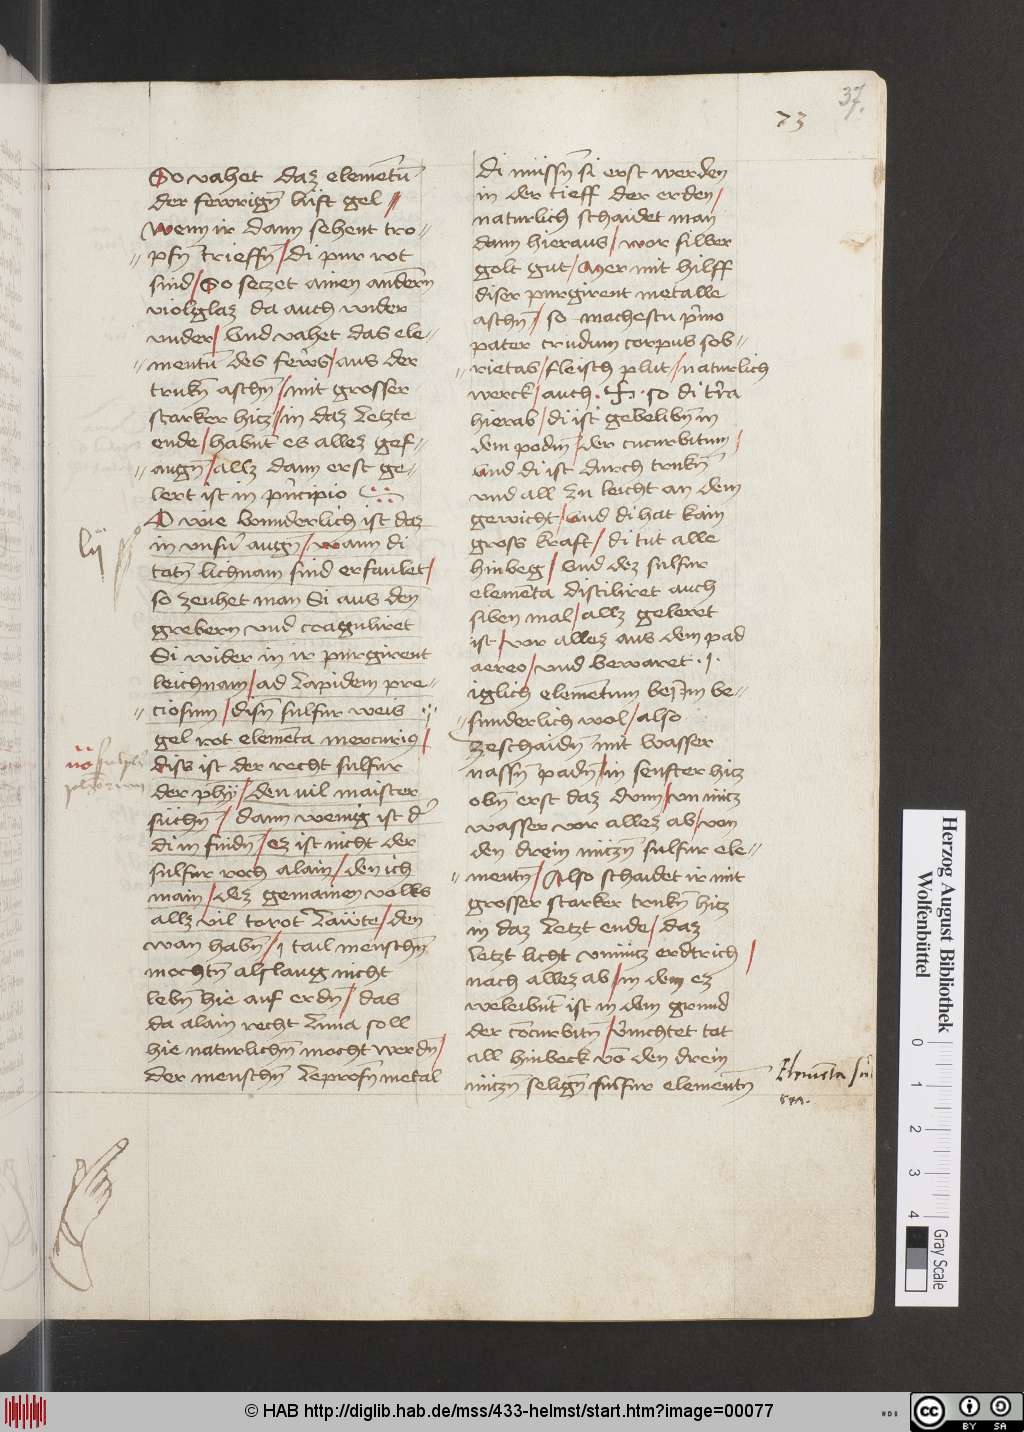 37.
73
So vahet daz elementu̅
der fewrign̅ lüft gel //
Wenn ir dann sehent tro//
// pfn̅ trieffn̅ / di pur rot
sind / So seczet ainen andern̅
violglaz da auch under
vnder / Vnd vahet das ele//
// mentu̅ des fewrs / aus der
trukn̅ aschn̅ / mit grosser
starker hicz / in daz letzte
ende / habnt es allez gef//
// augn̅ / allz dann erst ge//
lert ist in principio
O wie bunnderlich ist daz
in vnsn̅ augn̅ / wann di
totn̅ lichnam sind erfaulet /
so zeuhet man Si aus den
grebern vnd coaguliret
Si wider in ir purgirent
leichnam / ad lapidem pre//
// ciosum / disn̅ sulfur weis
gel rot elementa mercurius /
diss ist der recht sulfur
der phy / den vil maister
suchn̅ / dann wenig ist d'
di in findn̅ / ez ist nicht der
sulfur roch alain / den ich
main / dez gemainen volks
allz vil torot läwte / den
wan habn̅ / 1 tail menschn̅
mochtn̅ als laug nicht
lebn̅ hie auf erdn̅ / das
da alain recht luna soll
hie naturlichn̅ mocht werdn̅ /
der menschn̅ leprosn̅ metal
di müssn̅ si erst werden
in der tieff der erden /
naturlich schaidet man
dann hieraus / wor silber
golt gut / Mer mit hilff
diser purgirent metalle
aschn̅ / so machestu primo
pater crudum corpus sob//
// rietas / fleisch plut / naturlich
werck / auch . so di tr̅a
hierab / di ist gebelibn̅ in
dem podm̅ / der cucurbitum /
Vnd di ist durch trukn̅
vnd all zu leicht an dem
gewicht / Vnd di hat kain
gross kraft / di tut alle
hinbeg / Vnd dez sulfur
elementa distiliret auch
siben mal / allz geleret
ist / vor allez aus dem pad
aereo / vnd bewaret . 1 .
iglich elementum beÿ im be//
// sunderlich wol / also
zeschaidn̅ mit wasser
nassn̅ padn̅ / in senfter hicz
obn̅ erst daz dunn / vnnücz
wasser vor allez ab / von
den drein nüczn̅ sulfur ele//
// mentn̅ / Also schaidet ir mit
grosser starker trukn̅ hicz
in daz letzt ende / daz
letzt licht vnnücz erdtrich /
nach allez ab / in dem ez
weleibnt ist in dem grund
der cocurbitn̅ / v̓nichtet tot
all hinbeck vo̅ den drein
nüczn̅ selign̅ sulfur elementn̅
Herzog August Bibliothek
Wolfenbüttel
0 1 2 3 4
Gray Scale
© HAB http://diglib.hab.de/mss/433-helmst/start.htm?image=00077
cc BY SA